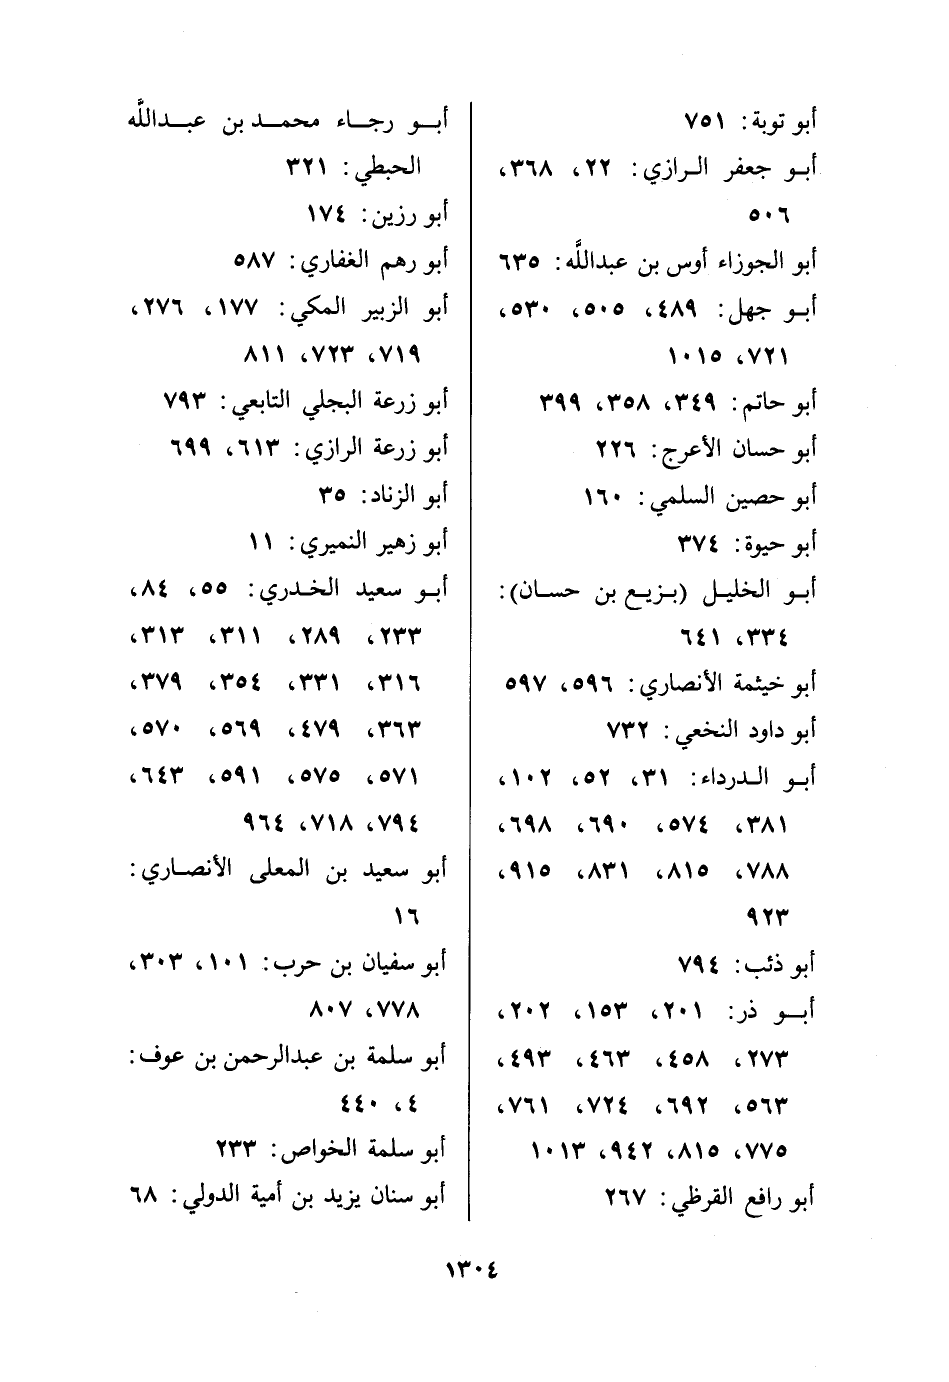 أبو توبة: ٧٥١
أبو جعفر الرازي: ٢٢، ٣٦٨،
٥٠٦
أبو الجوزاء أوس بن عبداللَّه: ٦٣٥
أبو جهل: ٤٨٩، ٥٠٥، ٥٣٠،
٧٢١، ١٠١٥
أبو حاتم: ٣٤٩، ٣٥٨، ٣٩٩
أبو حسان الأعرج: ٢٢٦
أبو حصين السلمي: ١٦٠
أبو حيوة: ٣٧٤
أبو الخليل (بزيع بن حسان):
٣٣٤، ٦٤١
أبو خيثمة الأنصاري: ٥٩٦، ٥٩٧
أبو داود النخعي: ٧٣٢
أبو الدرداء: ٣١، ٥٢، ١٠٢،
٣٨١، ٥٧٤، ٦٩٠، ٦٩٨،
٧٨٨، ٨١٥، ٨٣١، ٩١٥،
٩٢٣
أبو ذئب: ٧٩٤
أبو ذر: ٢٠١، ١٥٣، ٢٠٢،
٢٧٣، ٤٥٨، ٤٦٣، ٤٩٣،
٥٦٣، ٦٩٢، ٧٢٤، ٧٦١،
٧٧٥، ٨١٥، ٩٤٢، ١٠١٣
أبو رافع القرظي: ٢٦٧
أبو رجاء محمد بن عبداللَّه
الحبطي: ٣٢١
أبو رزين: ١٧٤
أبو رهم الغفاري: ٥٨٧
أبو الزبير المكي: ١٧٧، ٢٧٦،
٧١٩، ٧٢٣، ٨١١
أبو زرعة البجلي التابعي: ٧٩٣
أبو زرعة الرازي: ٦١٣، ٦٩٩
أبو الزناد: ٣٥
أبو زهير النميري: ١١
أبو سعيد الخدري: ٥٥، ٨٤،
٢٣٣، ٢٨٩، ٣١١، ٣١٣،
٣١٦، ٣٣١، ٣٥٤، ٣٧٩،
٣٦٣، ٤٧٩، ٥٦٩، ٥٧٠،
٥٧١، ٥٧٥، ٥٩١، ٦٤٣،
٧٩٤، ٧١٨، ٩٦٤
أبو سعيد بن المعلى الأنصاري:
١٦
أبو سفيان بن حرب: ١٠١، ٣٠٣،
٧٧٨، ٨٠٧
أبو سلمة بن عبدالرحمن بن عوف:
٤، ٤٤٠
أبو سلمة الخواص: ٢٣٣
أبو سنان يزيد بن أمية الدولي: ٦٨
١٣٠٤